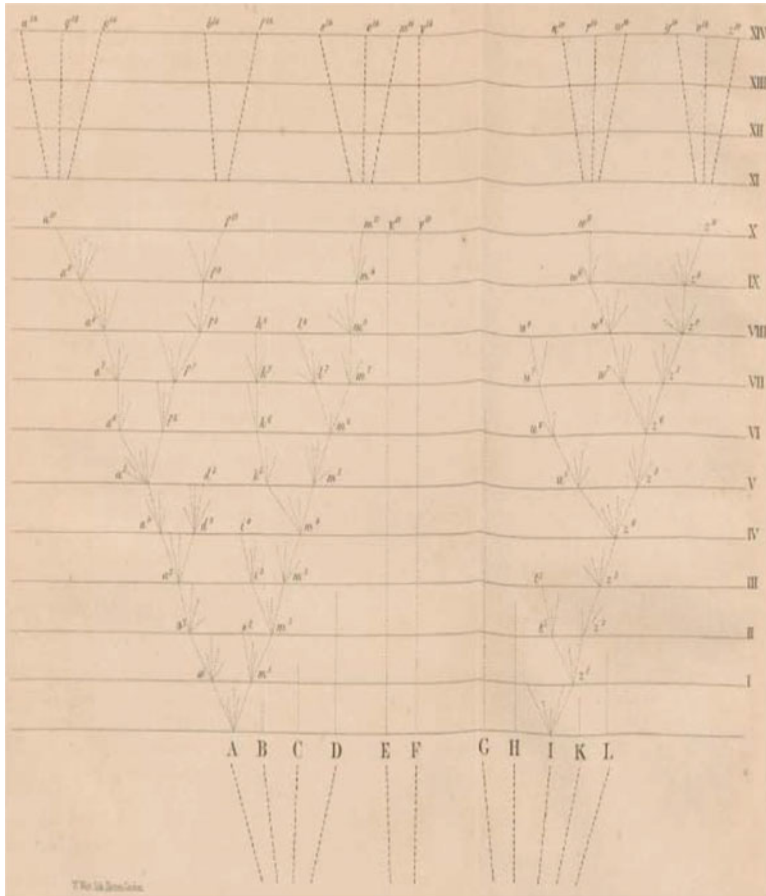 a¹⁴ q¹⁴ p¹⁴ b¹⁴ f¹⁴ o¹⁴ e¹⁴ m¹⁴ n¹⁴ r¹⁴ w¹⁴ y¹⁴ v¹⁴ z¹⁴ XIV
XIII
XII
XI
a¹⁰ f¹⁰ m¹⁰ E¹⁰ F¹⁰ w¹⁰ z¹⁰ X
a⁹ f⁹ m⁹ w⁹ z⁹ IX
a⁸ f⁸ k⁸ l⁸ m⁸ u⁸ w⁸ z⁸ VIII
a⁷ f⁷ k⁷ l⁷ m⁷ u⁷ w⁷ z⁷ VII
a⁶ f⁶ k⁶ m⁶ u⁶ z⁶ VI
a⁵ d⁵ k⁵ m⁵ u⁵ z⁵ V
a⁴ d⁴ i⁴ m⁴ z⁴ IV
a³ i³ m³ t³ z³ III
a² s² m² t² z² II
a¹ m¹ z¹ I
A B C D E F G H I K L